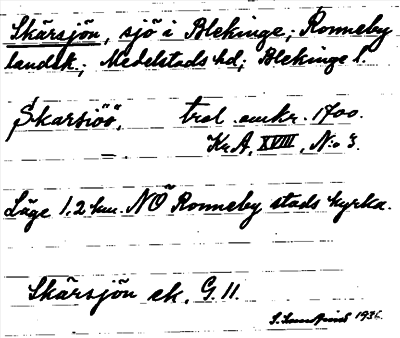 Skärsjön, sjö i Blekinge, Ronneby
landsk; Medelstads hd; Blekinge l.
Skarsiöö, trol. omkr. 1700.
KrA, XVIII, N:o 3.
Läge 1,2 km. NÖ Ronneby stads kyrka.
Skärsjön ek. G. 11.
1936.